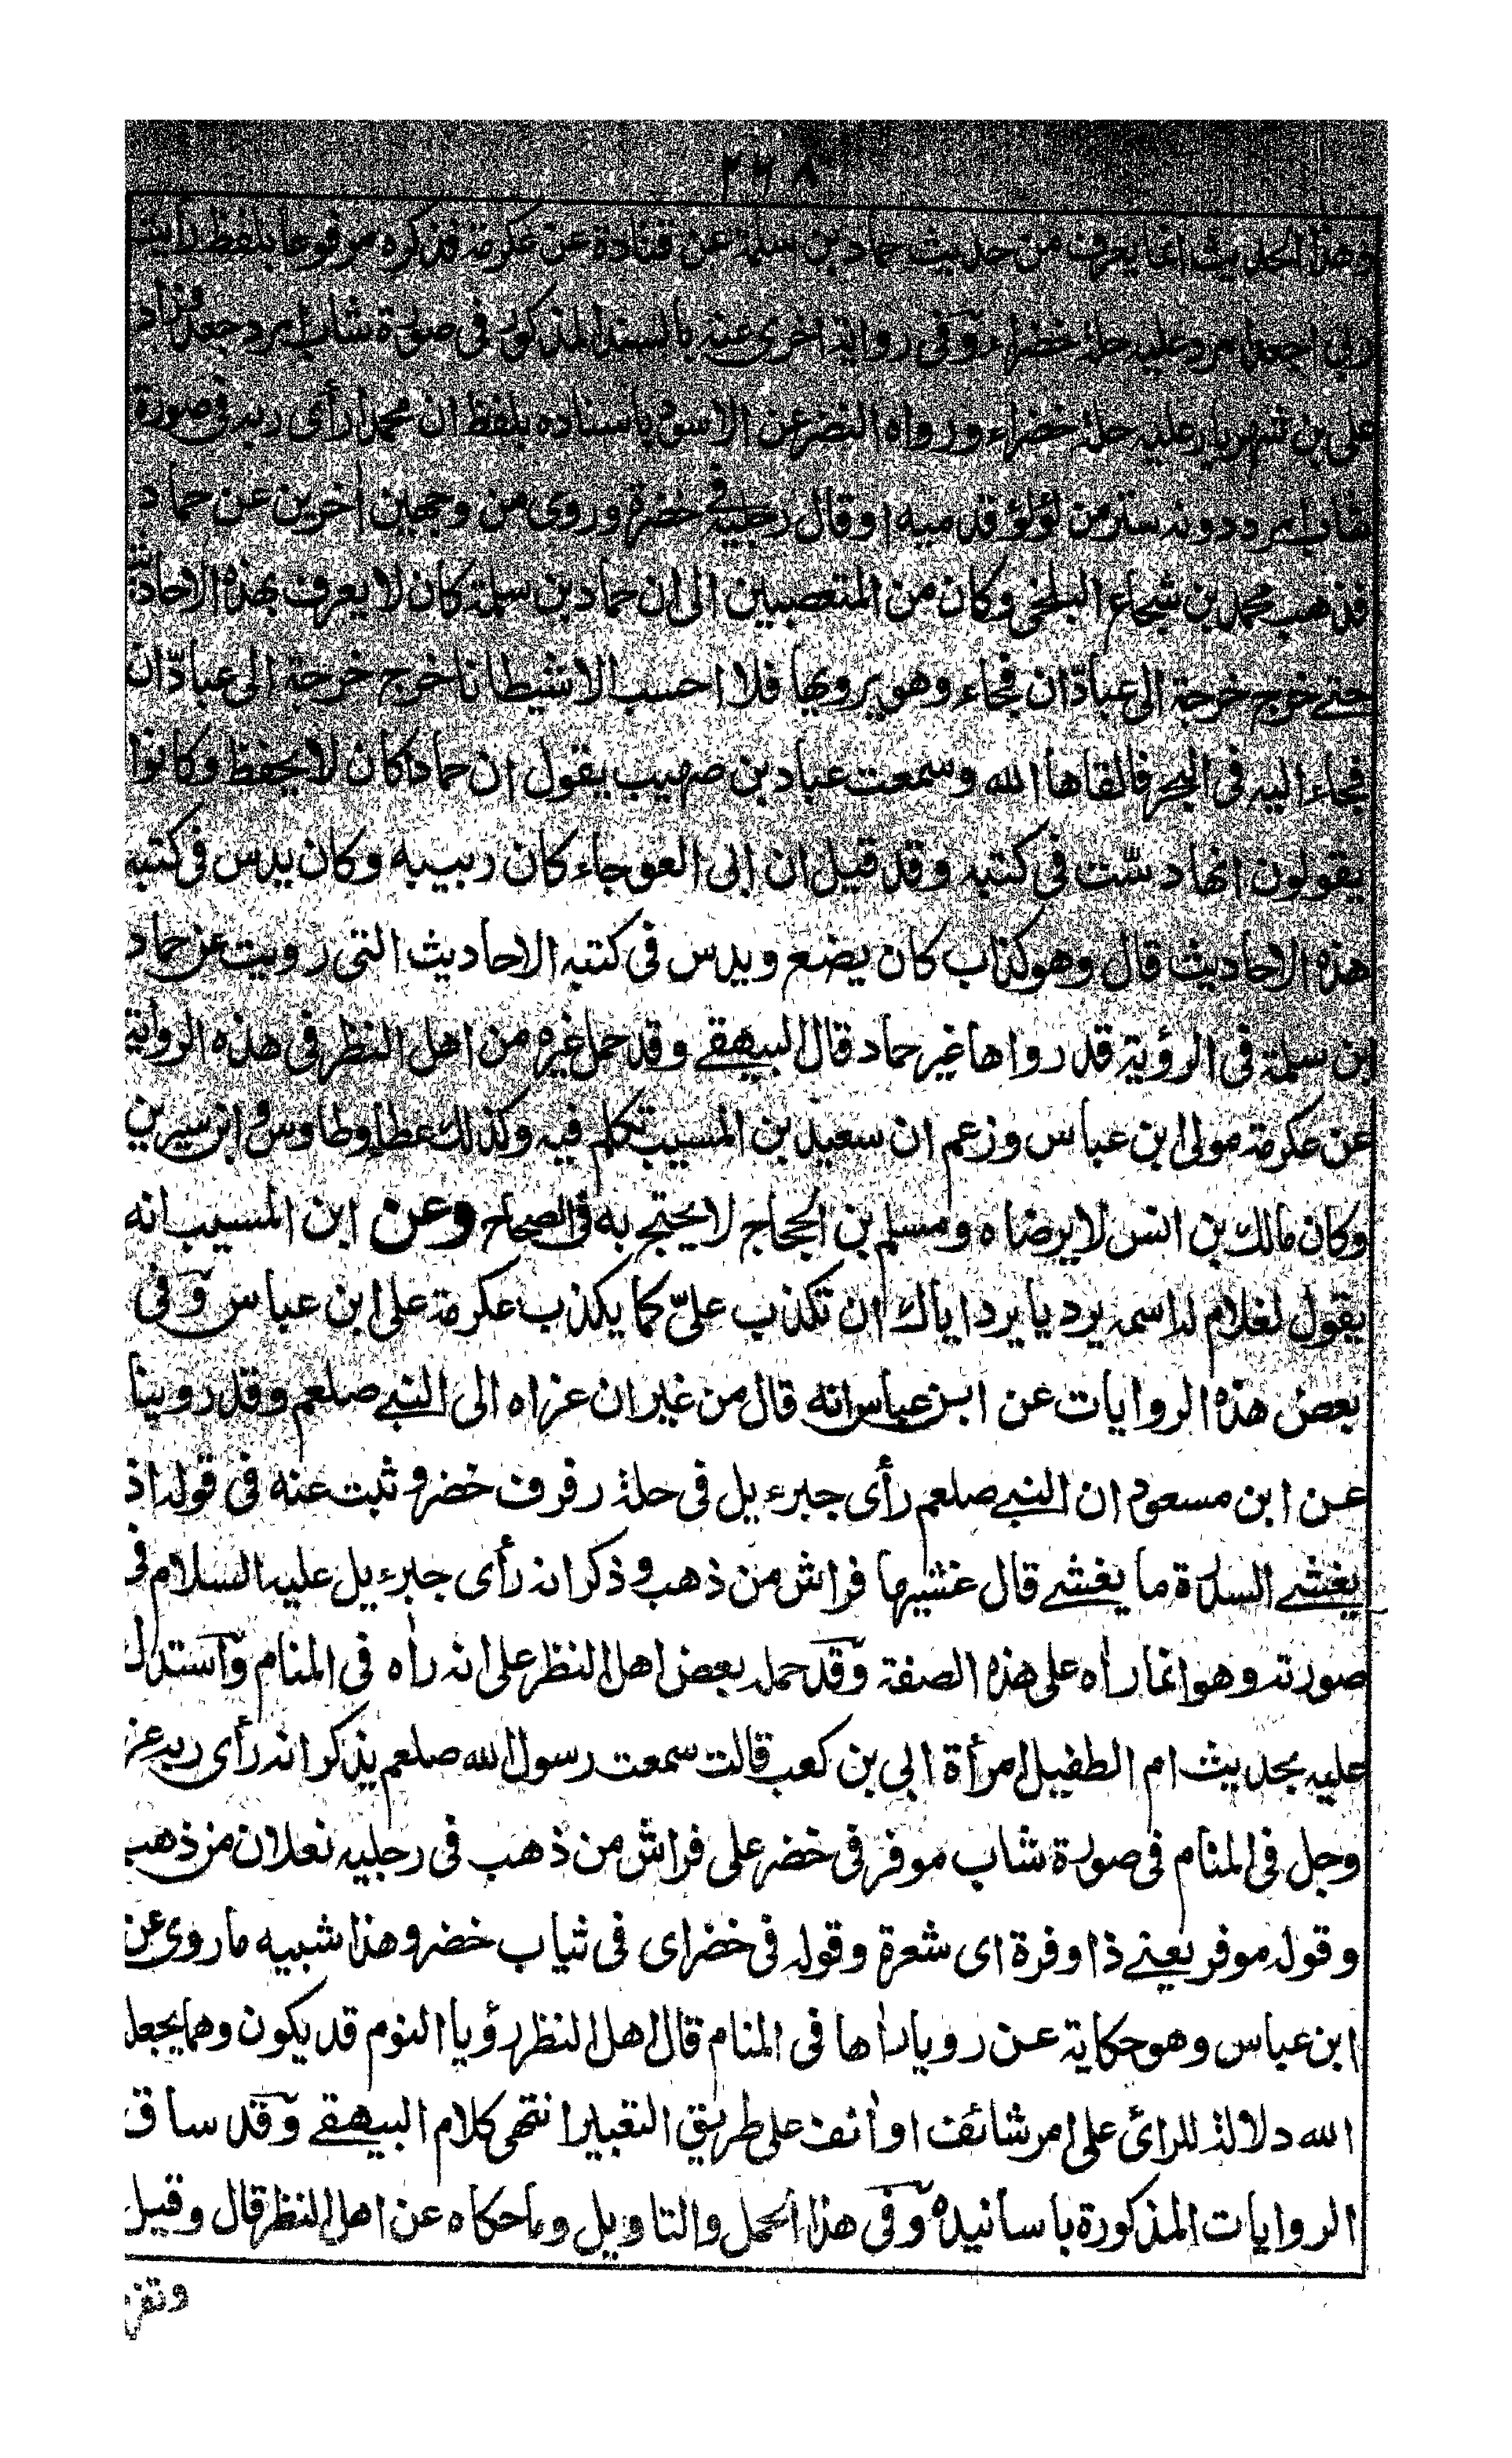 ٢٦٨
وهذا الحديث انما يعرف من حديث حماد بن سلمة عن قتادة عن عكرمة فذكره مرفوعا بلفظ رأيت
ربي اجعد امرد عليه حلة خضراء وفى رواية اخرى عنه بالسند المذكور فى صورة شاب امرد جعد وزاد
على بن شهريار عليه حلة خضراء ورواه النضر عن الاسود باسناده بلفظ ان محمدا رأى ربه فى صورة
شاب امرد دونه ستر من لؤلؤ قدميه او قال رجليه فى خضرة وروى من وجهين اخرين عن حماد
فذهب محمد بن شجاع البلخى وكان من المتعصبين الى ان حماد بن سلمة كان لا يعرف بهذه الاحاديث
حتے خرج خرجة الى عبادّان فجاء وهو يرويها فلا احسب الا شيطانا خرج خرجة الى عبادّان
فجاء اليه فى البحر فالقاها الله وسمعت عباد بن صهيب يقول ان حمادا كان لا يحفظ وكانوا
يقولون انها دسّت فى كتبه وقد قيل ان ابى العوجاء كان ربيبه وكان يدس فى كتبه
هذه الاحاديث قال وهو كذاب كان يضع ويدس فى كتبه الاحاديث التى رويت عن حماد
ابن سلمة فى الرؤية قد رواها غير حماد قال البيهقے وقد حمل غيره من اهل النظر فى هذه الرواية
عن عكرمة مولى ابن عباس وزعم ان سعيد بن المسيب تكلم فيه وكذلك عطاء وطاوس و ابن سيرين
وكان مالك بن انس لا يرضاه ومسلم بن الحجاج لا يحتج به فى الصحاح وعن ابن المسيب انه
يقول لغلام له اسمه برد يا برد اياك ان تكذب علىّ كما يكذب عكرمة على ابن عباس وفى
بعض هذه الروايات عن ابن عباس انه قال من غير ان عزاه الى النبے صلعم وقد روينا
عن ابن مسعود ان النبے صلعم رأى جبرءيل فى حلة رفرف خضر و ثبت عنه فى قوله اذ
يغشے السدرة ما يغشے قال غشيها فراش من ذهب و ذكر انه رأى جبرءيل عليه السلام فى
صورته وهو انما راٰه على هذه الصفة وقد حمله بعض اهل النظر على انه راٰه فى المنام واستدل
عليه بحديث ام الطفيل امرأة ابى بن كعب قالت سمعت رسول الله صلعم يذكر انه رأى ربه عز
وجل فى المنام فى صورة شاب موفر فى خضر على فراش من ذهب فى رجليه نعلان من ذهب
وقوله موفر يعنے ذا وفرة اى شعرة وقوله فى خضر اى فى ثياب خضر وهذا شبيه ما روى عن
ابن عباس وهو حكاية عن رويا راٰها فى المنام قال اهل النظر رؤيا النوم قد يكون وهما يجعل
الله دلالة للرائ على امر شائف او اٰنف على طريق التعبير انتهى كلام البيهقے وقد ساق
الروايات المذكورة باسانيده وفى هذا الحمل والتاويل وما حكاه عن اهل النظر قال وقيل